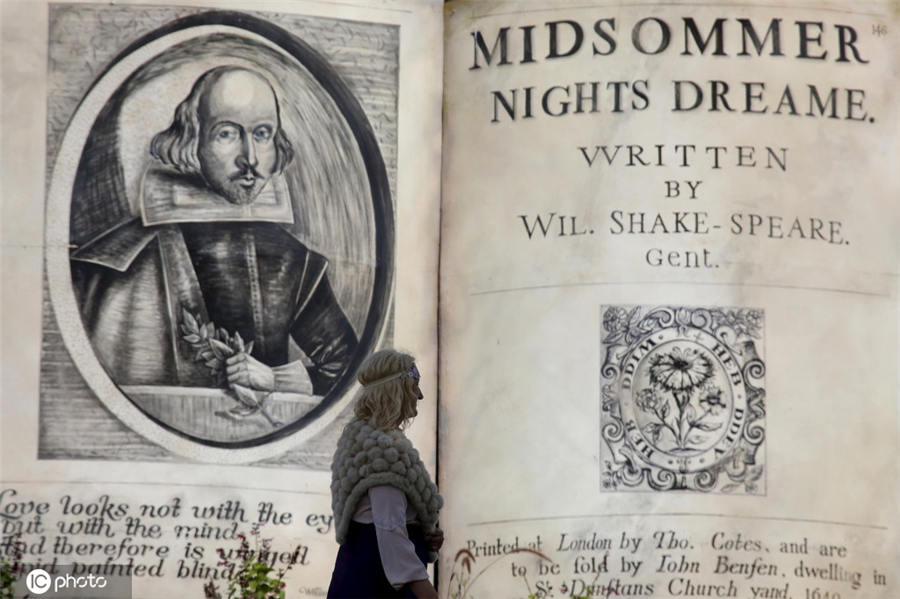 146
MIDSOMMER
NIGHTS DREAME.
WRITTEN
BY
WIL. SHAKE-SPEARE.
Gent.
HEB DDIEV
HEB DDIM
Printed at London by Tho. Cotes, and are
to be sold by Iohn Bensen, dwelling in
St. Dunstans Church yard, 1640
Love looks not with the ey
but with the mind.
And therefore is winged
painted blind
IC photo